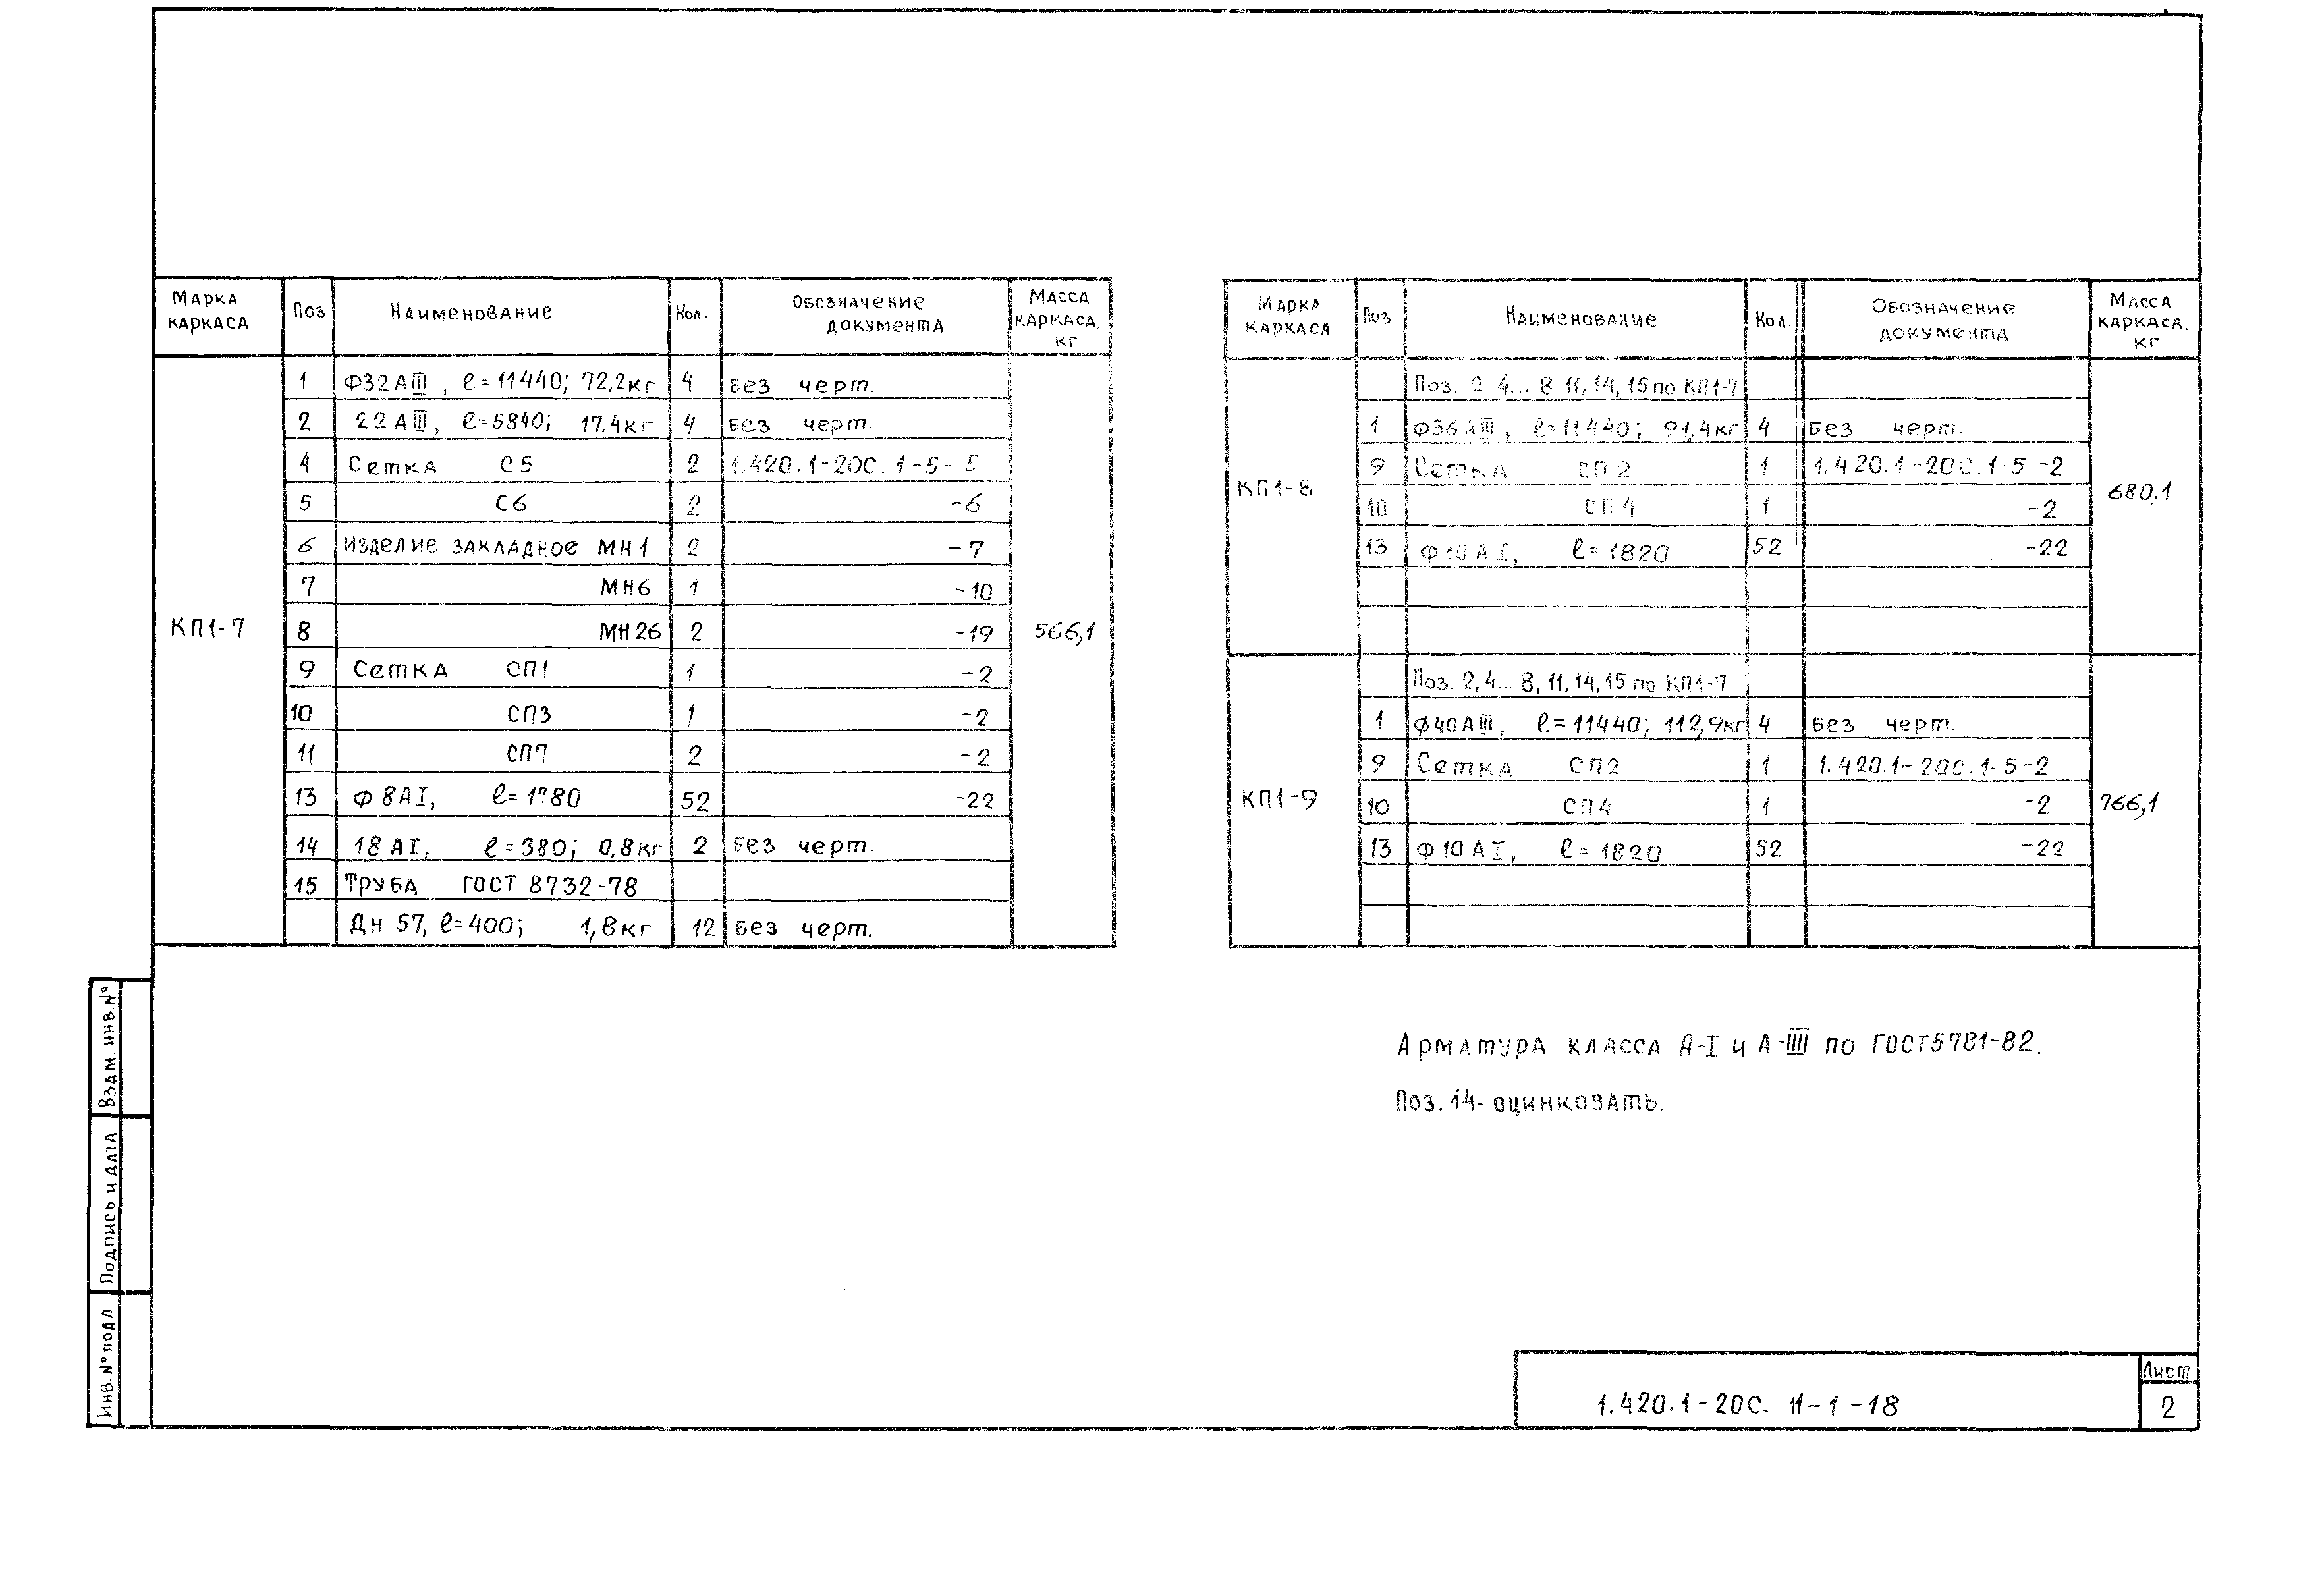 Марка каркаса | Поз | Наименование | Кол. | Обозначение документа | Масса каркаса, кг
КП1-7 | 1 | Ф32АIII, ℓ=11440; 72,2кг | 4 | Без черт. | 566,1
2 | 22АIII, ℓ=5840; 17,4кг | 4 | Без черт.
4 | Сетка С5 | 2 | 1.420.1-20С.1-5-5
5 | С6 | 2 | -6
6 | Изделие закладное МН1 | 2 | -7
7 | МН6 | 1 | -10
8 | МН26 | 2 | -19
9 | Сетка СП1 | 1 | -2
10 | СП3 | 1 | -2
11 | СП7 | 2 | -2
13 | Ф8АI, ℓ=1780 | 52 | -22
14 | 18АI, ℓ=380; 0,8кг | 2 | Без черт.
15 | Труба ГОСТ 8732-78
Дн 57, ℓ=400; 1,8кг | 12 | Без черт.
Марка каркаса | Поз | Наименование | Кол. | Обозначение документа | Масса каркаса, кг
КП1-8 | Поз. 2,4...8,11,14,15 по КП1-7 | 680,1
1 | Ф36АIII, ℓ=11440; 91,4кг | 4 | Без черт.
9 | Сетка СП2 | 1 | 1.420.1-20С.1-5-2
10 | СП4 | 1 | -2
13 | Ф10АI, ℓ=1820 | 52 | -22
КП1-9 | Поз. 2,4...8,11,14,15 по КП1-7 | 766,1
1 | Ф40АIII, ℓ=11440; 112,9кг | 4 | Без черт.
9 | Сетка СП2 | 1 | 1.420.1-20С.1-5-2
10 | СП4 | 1 | -2
13 | Ф10АI, ℓ=1820 | 52 | -22
Арматура класса А-I и А-III по ГОСТ5781-82.
Поз.14-оцинковать.
Взам. инв. N°
Подпись и дата
Инв. N° подл
1.420.1-20С. 11-1-18
Лист
2